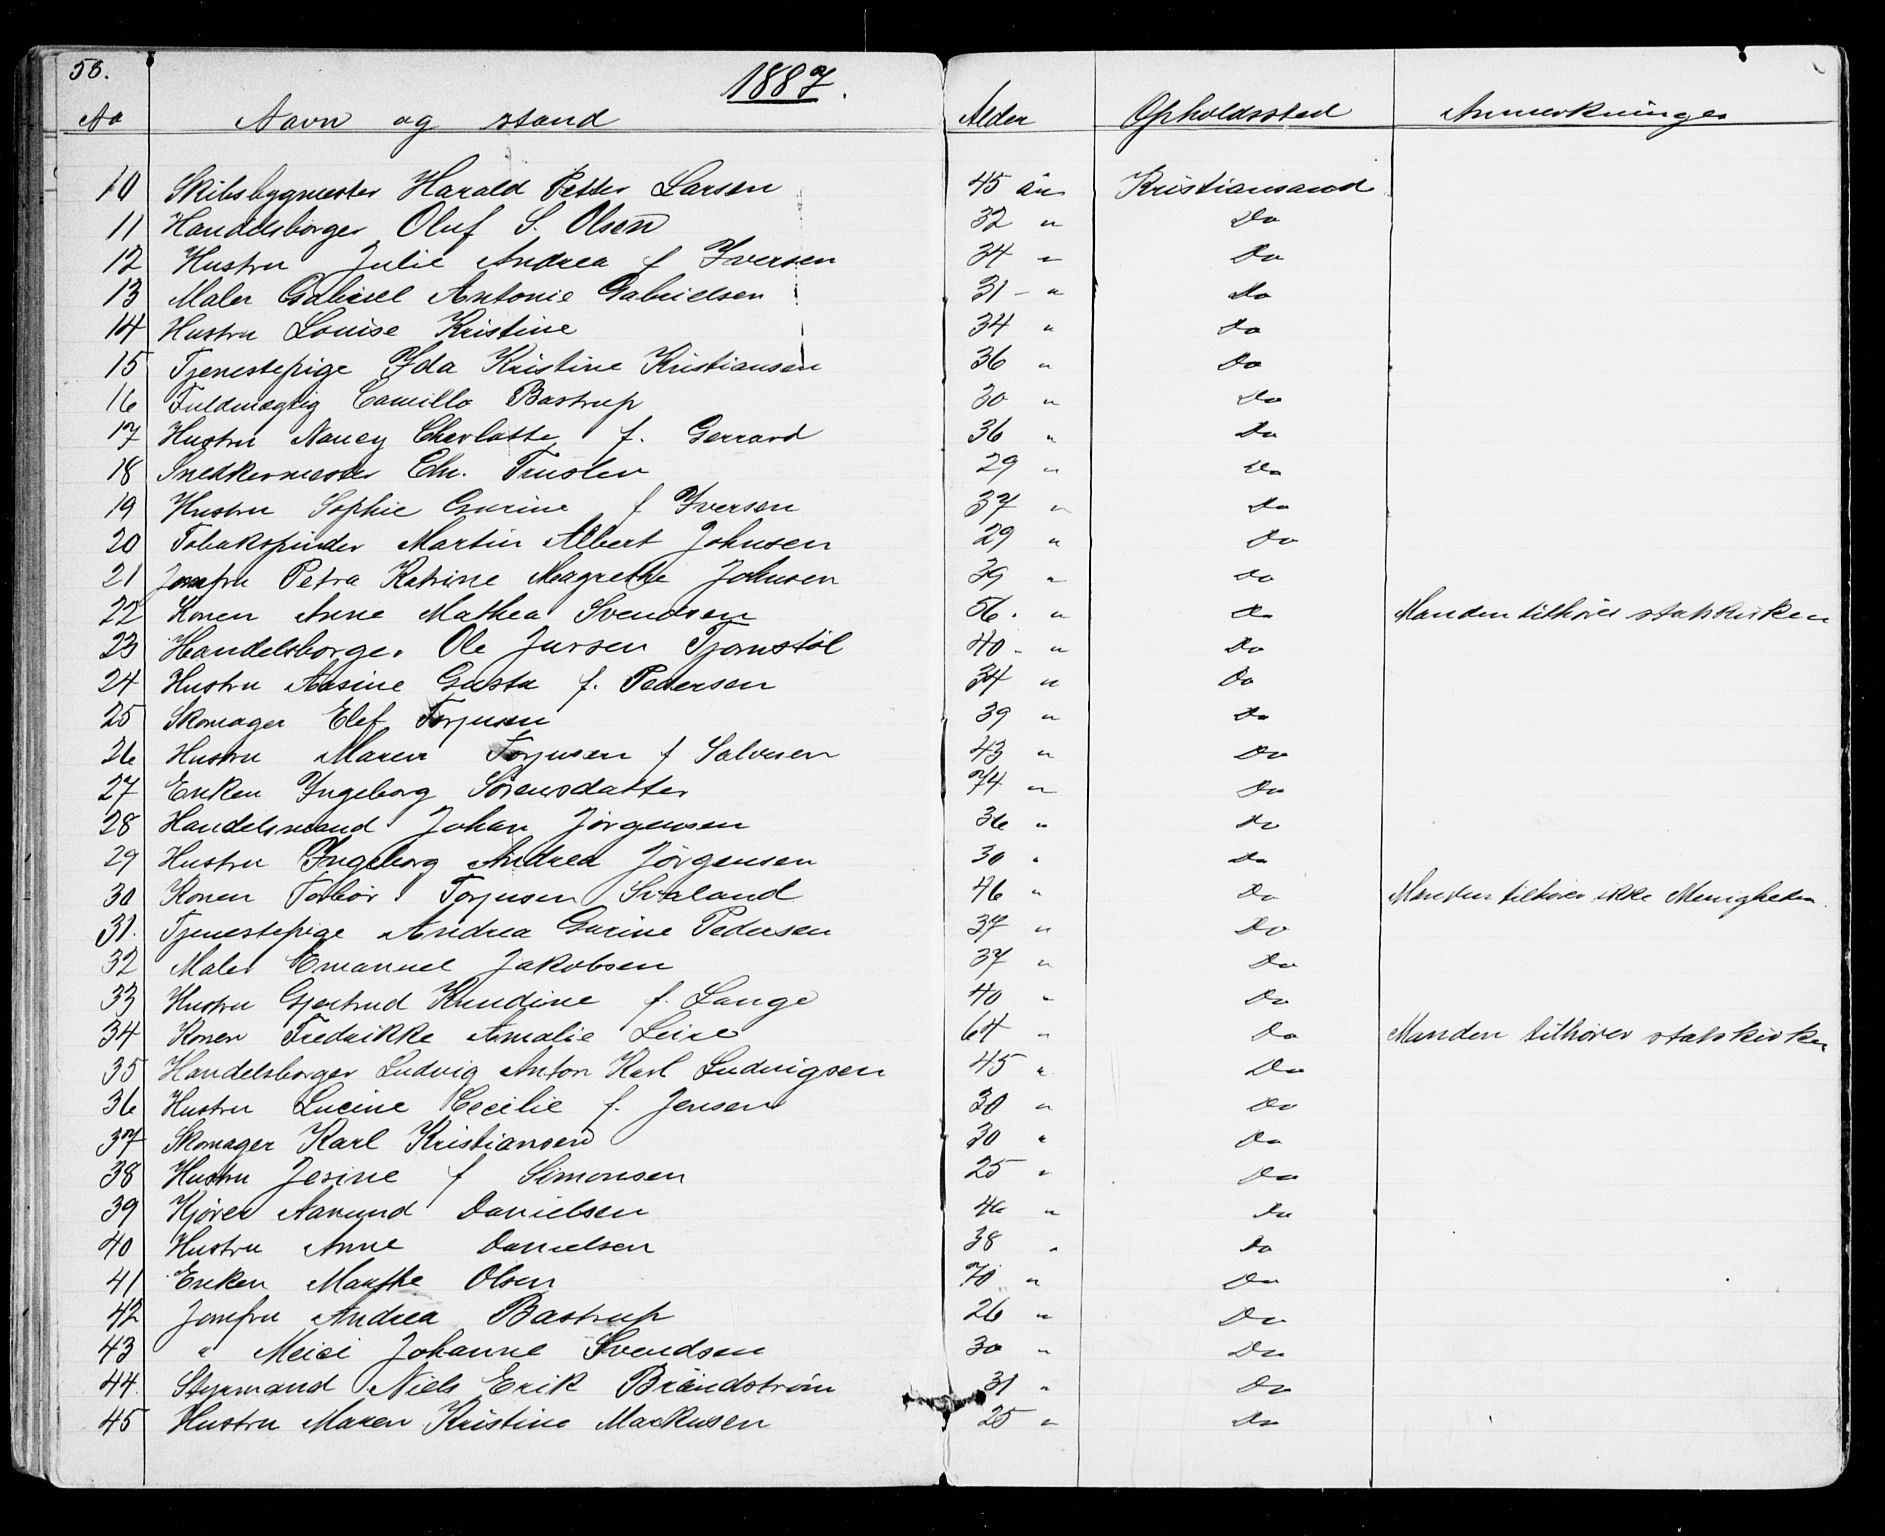 56.
1887.
No Navn og stand Alder Opholdssted Anmerkninger
10 Skibsbygmester Harald Petter Larsen 45 år Kristiansand
11 Handelsborger Oluf S. Olsen 32 " Do
12 Hustru Julie Andrea f Iversen 34 " Do
13 Maler Gabriel Antonie Gabrielsen 31 - " Do
14 Hustru Louise Kristine 34 " Do
15 Tjenestepige Ida Kristine Kristiansen 36 " Do
16 Fuldmægtig Camillo Bastrup 30 " Do
17 Hustru Nancy Charlotte f. Gerrard 36 " Do
18 Snedkermester Chr. Truslew 29 " Do
19 Hustru Sophie Gurine f Iversen 37 " Do
20 Tobakspinder Martin Albert Johnsen 29 " Do
21 Jomfru Petra Katrine Magrethe Johnsen 39 " Do
22 Konen Anne Mathea Svendsen 56. " Do Manden tilhører statskirken
23 Handelsborger Ole Jursen Tjomstöl 40 - " Do
24 Hustru Aasine Gusta f. Pedersen 34 " Do
25 Skomager Elef Torjusen 39 " Do
26 Hustru Maren Torjusen f Salvesen 43 " Do
27 Enken Ingeborg Sörensdatter 74 " Do
28 Handelsmand Johan Jörgensen 36 " Do
29 Hustru Ingeborg Andrea Jörgensen 30 " Do
30 Konen Torbör Torjusen Sivaland 46 " Do Manden tilhører ikke Menigheden.
31. Tjenestepige Andrea Gurine Pedersen 37 " Do
32 Maler Emanuel Jakobsen 37 " Do
33 Hustru Gjertrud Knudine f. Lange 40 " Do
34 Konen Fredrikke Amalie Leire 64 " Do Manden tilhører statskirken
35 Handelsborger Ludvig Anton Karl Ludvigsen 45 " Do
36 Hustru Lucine Cecilie f. Jensen 30 " Do
37 Skomager Karl Kristiansen 30 " Do
38 Hustru Jesine f Simonsen 25 " Do
39 Kjører Aanund Danielsen 46 " Do
40 Hustru Anne Danielsen 38 " Do
41 Enken Marthe Olsen 70 " Do
42 Jomfru Andrea Bastrup 26 " Do
43 " Meier Johanne Svendsen 30 " Do
44. Styrmand Niels Erik Brändström 31 " Do
45 Hustru Maren Kristine Markusen 25 " Do